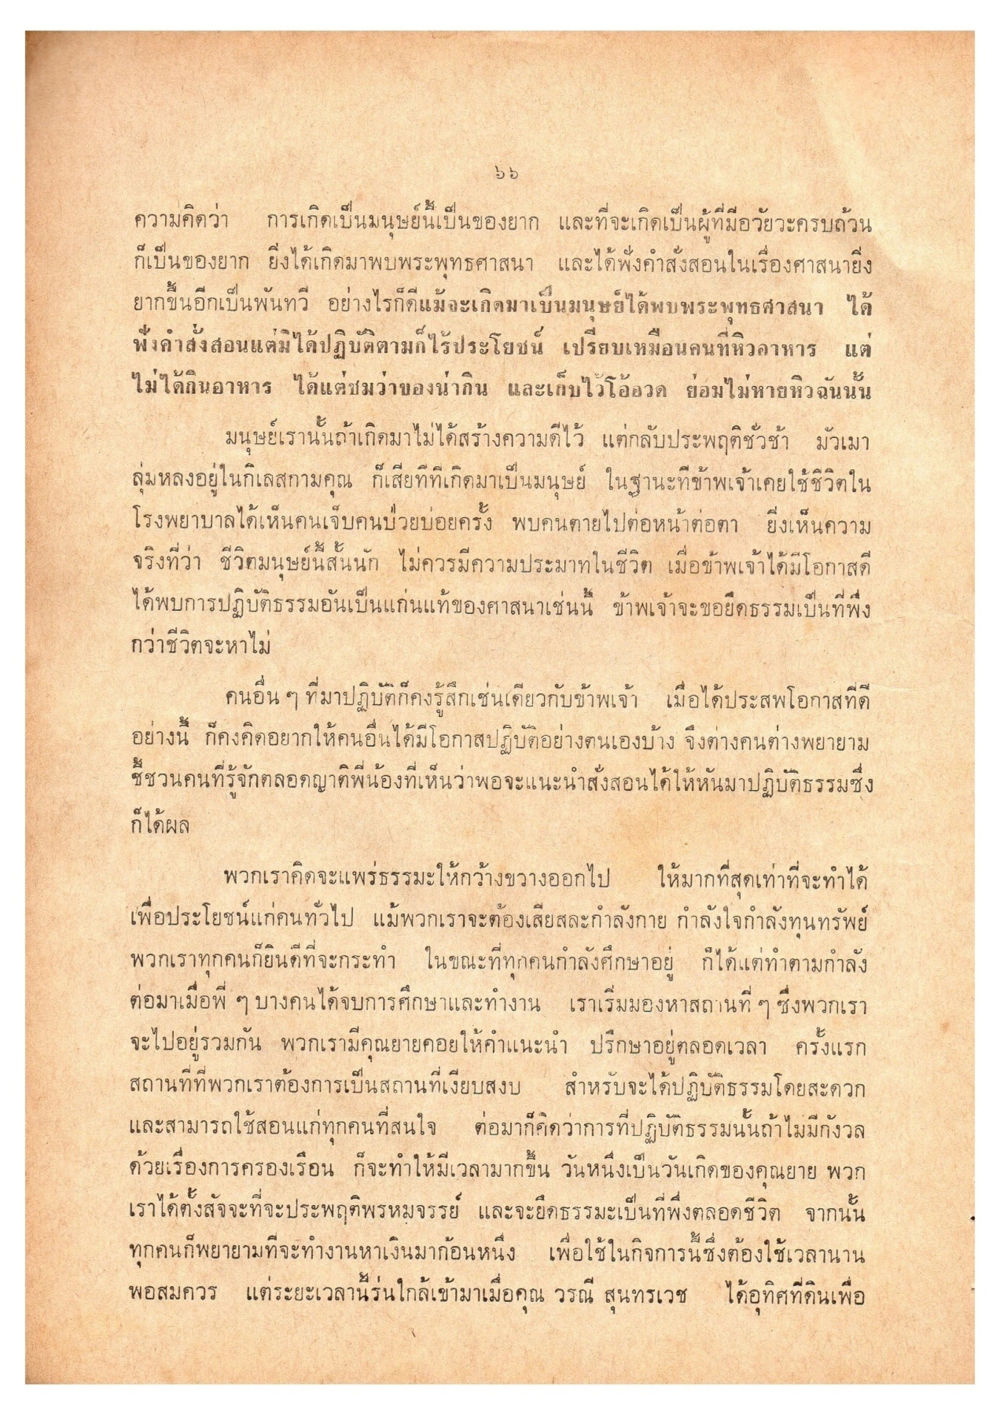 ๖๖
ความคิดว่า การเกิดเป็นมนุษย์นี้เป็นของยาก และที่จะเกิดเป็นผู้ที่มีอวัยวะครบถ้วน
ก็เป็นของยาก ยิ่งได้เกิดมาพบพระพุทธศาสนา และได้ฟังคำสั่งสอนในเรื่องศาสนายิ่ง
ยากขึ้นอีกเป็นพันทวี อย่างไรก็ดีแม้จะเกิดมาเป็นมนุษย์ได้พบพระพุทธศาสนา ได้
ฟังคำสั่งสอนแต่มิได้ปฏิบัติตามก็ไร้ประโยชน์ เปรียบเหมือนคนที่หิวอาหาร แต่
ไม่ได้กินอาหาร ได้แต่ชมว่าของน่ากิน และเก็บไว้โอ้อวด ย่อมไม่หายหิวฉันนั้น
มนุษย์เรานั้นถ้าเกิดมาไม่ได้สร้างความดีไว้ แต่กลับประพฤติชั่วช้า มัวเมา
ลุ่มหลงอยู่ในกิเลสกามคุณ ก็เสียทีที่เกิดมาเป็นมนุษย์ ในฐานะที่ข้าพเจ้าเคยใช้ชีวิตใน
โรงพยาบาลได้เห็นคนเจ็บคนป่วยบ่อยครั้ง พบคนตายไปต่อหน้าต่อตา ยิ่งเห็นความ
จริงที่ว่า ชีวิตมนุษย์นี้สั้นนัก ไม่ควรมีความประมาทในชีวิต เมื่อข้าพเจ้าได้มีโอกาสดี
ได้พบการปฏิบัติธรรมอันเป็นแก่นแท้ของศาสนาเช่นนี้ ข้าพเจ้าจะขอยึดธรรมเป็นที่พึ่ง
กว่าชีวิตจะหาไม่
คนอื่น ๆ ที่มาปฏิบัติก็คงรู้สึกเช่นเดียวกับข้าพเจ้า เมื่อได้ประสพโอกาสที่ดี
อย่างนี้ ก็คงคิดอยากให้คนอื่นได้มีโอกาสปฏิบัติอย่างตนเองบ้าง จึงต่างคนต่างพยายาม
ชี้ชวนคนที่รู้จักตลอดญาติพี่น้องที่เห็นว่าพอจะแนะนำสั่งสอนได้ให้หันมาปฏิบัติธรรมซึ่ง
ก็ได้ผล
พวกเราคิดจะแพร่ธรรมะให้กว้างขวางออกไป ให้มากที่สุดเท่าที่จะทำได้
เพื่อประโยชน์แก่คนทั่วไป แม้พวกเราจะต้องเสียสละกำลังกาย กำลังใจกำลังทุนทรัพย์
พวกเราทุกคนก็ยินดีที่จะกระทำ ในขณะที่ทุกคนกำลังศึกษาอยู่ ก็ได้แต่ทำตามกำลัง
ต่อมาเมื่อพี่ ๆ บางคนได้จบการศึกษาและทำงาน เราเริ่มมองหาสถานที่ ๆ ซึ่งพวกเรา
จะไปอยู่รวมกัน พวกเรามีคุณยายคอยให้คำแนะนำ ปรึกษาอยู่ตลอดเวลา ครั้งแรก
สถานที่ที่พวกเราต้องการเป็นสถานที่เงียบสงบ สำหรับจะได้ปฏิบัติธรรมโดยสะดวก
และสามารถใช้สอนแก่ทุกคนที่สนใจ ต่อมาก็คิดว่าการที่ปฏิบัติธรรมนั้นถ้าไม่มีกังวล
ด้วยเรื่องการครองเรือน ก็จะทำให้มีเวลามากขึ้น วันหนึ่งเป็นวันเกิดของคุณยาย พวก
เราได้ตั้งสัจจะที่จะประพฤติพรหมจรรย์ และจะยึดธรรมะเป็นที่พึ่งตลอดชีวิต จากนั้น
ทุกคนก็พยายามที่จะทำงานหาเงินมาก้อนหนึ่ง เพื่อใช้ในกิจการนี้ซึ่งต้องใช้เวลานาน
พอสมควร แต่ระยะเวลานี้ร่นใกล้เข้ามาเมื่อคุณ วรณี สุนทรเวช ได้อุทิศที่ดินเพื่อ